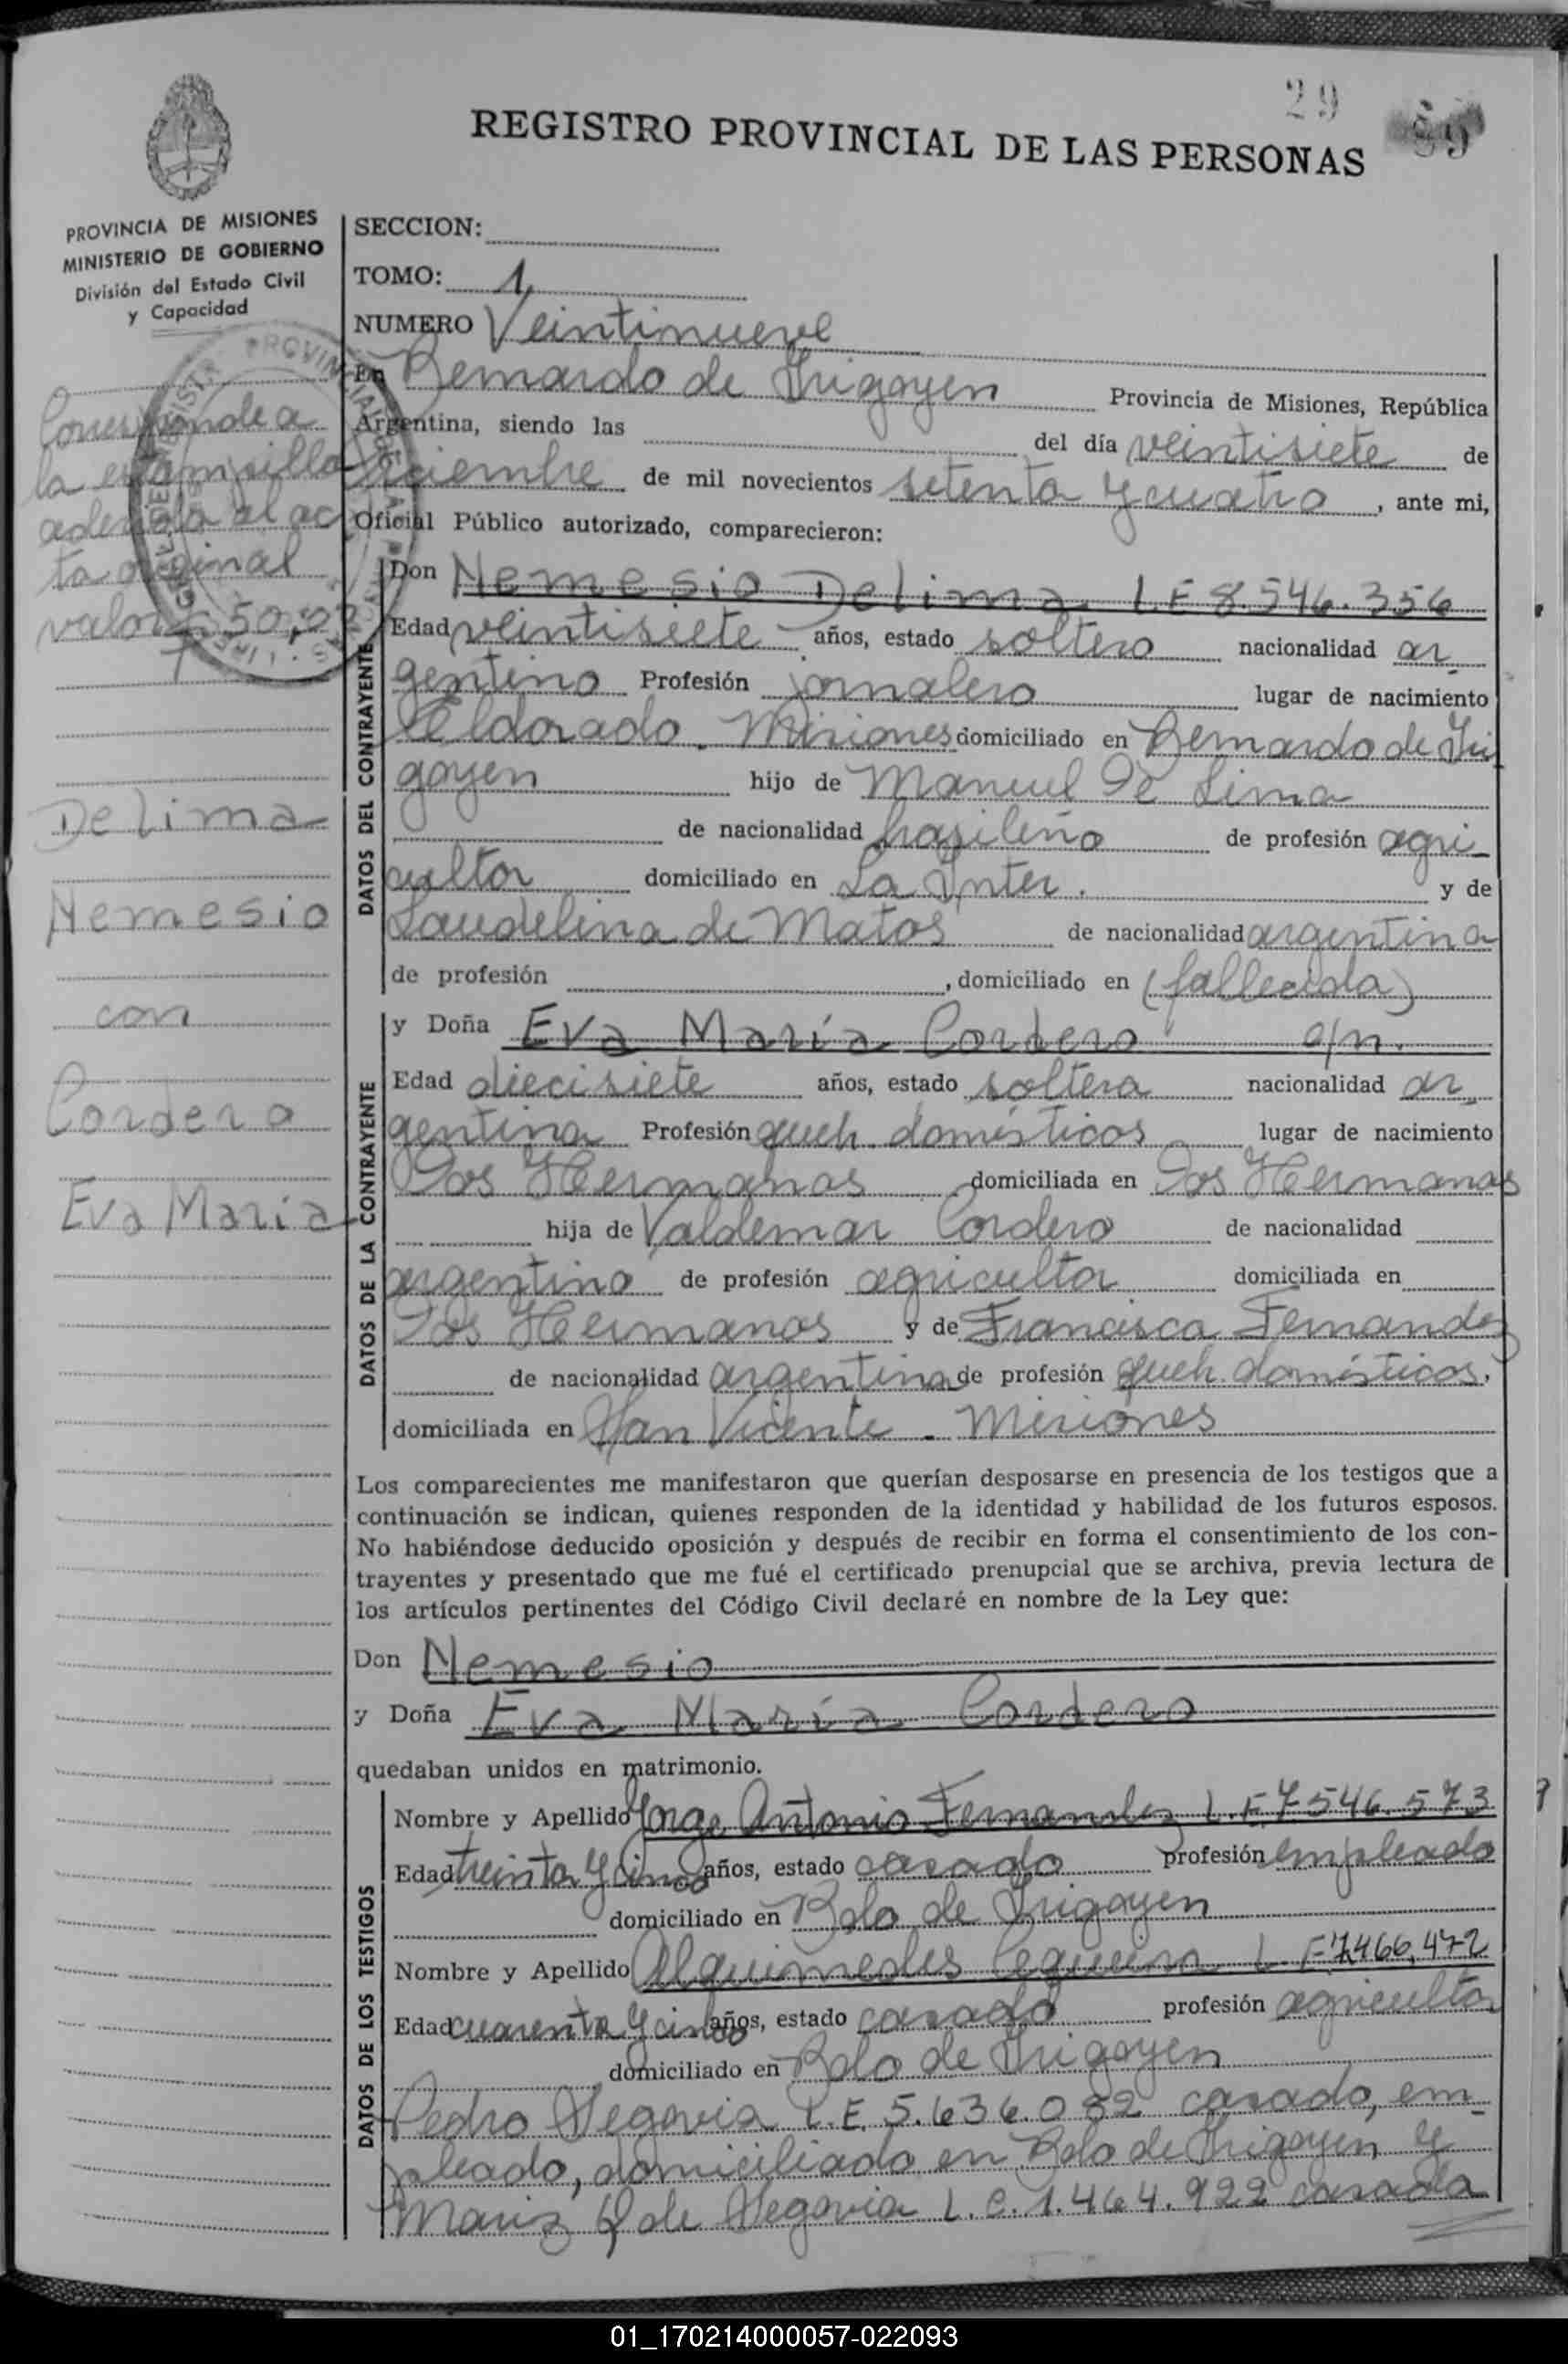 29
REGISTRO PROVINCIAL DE LAS PERSONAS
PROVINCIA DE MISIONES
MINISTERIO DE GOBIERNO
División del Estado Civil
y Capacidad
Corresponde a
la estampilla
aderida al ac
ta original
valor $ 50,00
Delima
Nemesio
con
Cordero
Eva Maria
SECCION:
TOMO: 1
NUMERO Veintinueve
En Bernardo de Irigoyen Provincia de Misiones, República
Argentina, siendo las del día veintisiete de
diciembre de mil novecientos setenta y cuatro, ante mi,
Oficial Público autorizado, comparecieron:
DATOS DEL CONTRAYENTE
Don Nemesio Delima L.E 8.546.356
Edad veintisiete años, estado soltero nacionalidad ar
gentino Profesión jornalero lugar de nacimiento
Eldorado. Misiones domiciliado en Bernardo de Iri
goyen hijo de Manuel De Lima
de nacionalidad brasileño de profesión agri
cultor domiciliado en La Inter. y de
Laudelina de Matos de nacionalidad argentina
de profesión , domiciliado en (fallecida)
DATOS DE LA CONTRAYENTE
y Doña Eva María Cordero c/n.
Edad diecisiete años, estado soltera nacionalidad ar
gentina Profesión queh. domésticos lugar de nacimiento
Dos Hermanas domiciliada en Dos Hermanas
hija de Valdemar Cordero de nacionalidad
argentino de profesión agricultor domiciliada en
Dos Hermanas y de Francisca Fernandez
de nacionalidad argentina de profesión queh. domésticos,
domiciliada en San Vicente - Misiones
Los comparecientes me manifestaron que querían desposarse en presencia de los testigos que a
continuación se indican, quienes responden de la identidad y habilidad de los futuros esposos.
No habiéndose deducido oposición y después de recibir en forma el consentimiento de los con-
trayentes y presentado que me fué el certificado prenupcial que se archiva, previa lectura de
los artículos pertinentes del Código Civil declaré en nombre de la Ley que:
Don Nemesio
y Doña Eva María Cordero
quedaban unidos en matrimonio.
DATOS DE LOS TESTIGOS
Nombre y Apellido Jorge Antonio Fernandez L.E 7.546.573
Edad treinta y cinco años, estado casado profesión empleado
domiciliado en Bdo de Irigoyen
Nombre y Apellido Alquimedes L.E 7.466.472
Edad cuarenta y cinco años, estado casado profesión agricultor
domiciliado en Bdo de Irigoyen
Pedro Segovia L.E. 5.636.082 casado, em
pleado, domiciliado en Bdo de Irigoyen, y
de Segovia L.C. 1.464.922 casada
01_170214000057-022093